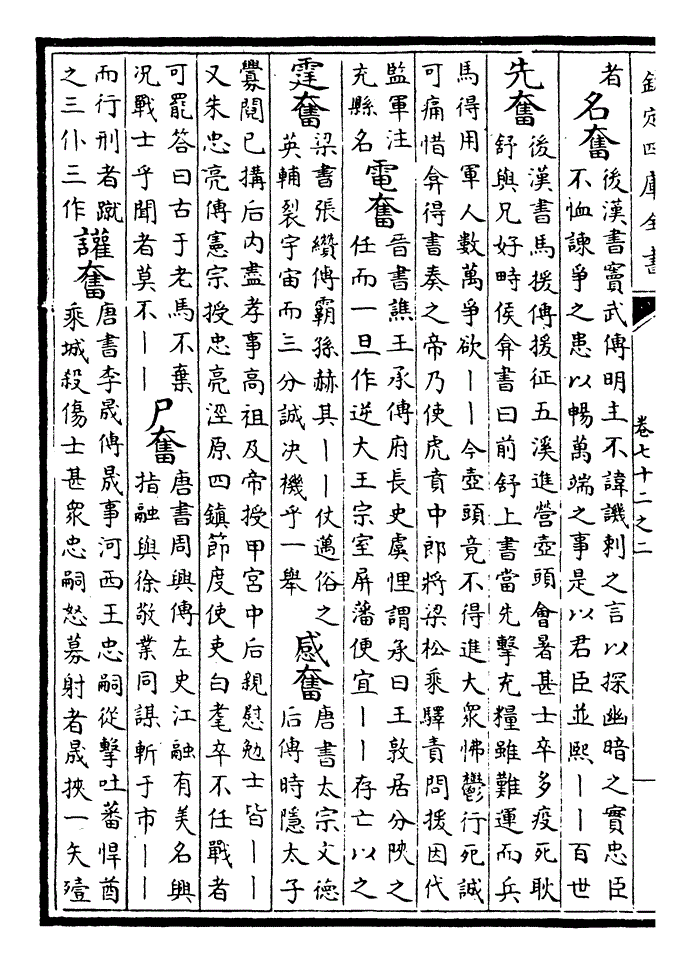 欽定四庫全書
卷七十二之二
者
名奮
後漢書竇武傳明主不諱譏刺之言以探幽暗之實忠臣
不恤諫爭之患以暢萬端之事是以君臣並熙丨丨百世
先奮
後漢書馬援傳援征五溪進營壺頭會暑甚士卒多疫死耿
舒與兄好畤侯弇書曰前舒上書當先擊充糧雖難運而兵
馬得用軍人數萬爭欲丨丨今壺頭竟不得進大衆怫鬱行死誠
可痛惜弇得書奏之帝乃使虎賁中郎將梁松乘驛責問援因代
監軍注
充縣名
電奮
晉書譙王承傳府長史虞悝謂承曰王敦居分陜之
任而一旦作逆大王宗室屏藩便宜丨丨存亡以之
霆奮
梁書張纘傳霸孫赫其丨丨仗邁俗之
英輔裂宇宙而三分誠决機乎一舉
感奮
唐書太宗文德
后傳時隱太子
釁閱已搆后内盡孝事高祖及帝授甲宮中后親慰勉士皆丨丨
又朱忠亮傳憲宗授忠亮涇原四鎮節度使吏白耄卒不任戰者
可罷答曰古于老馬不棄
況戰士乎聞者莫不丨丨
尸奮
唐書周興傳左史江融有美名興
指融與徐敬業同謀斬于市丨丨
而行刑者蹴
之三仆三作
讙奮
唐書李晟傳晟事河西王忠嗣從擊吐蕃悍酋
乘城殺傷士甚衆忠嗣怒募射者晟挾一矢殪